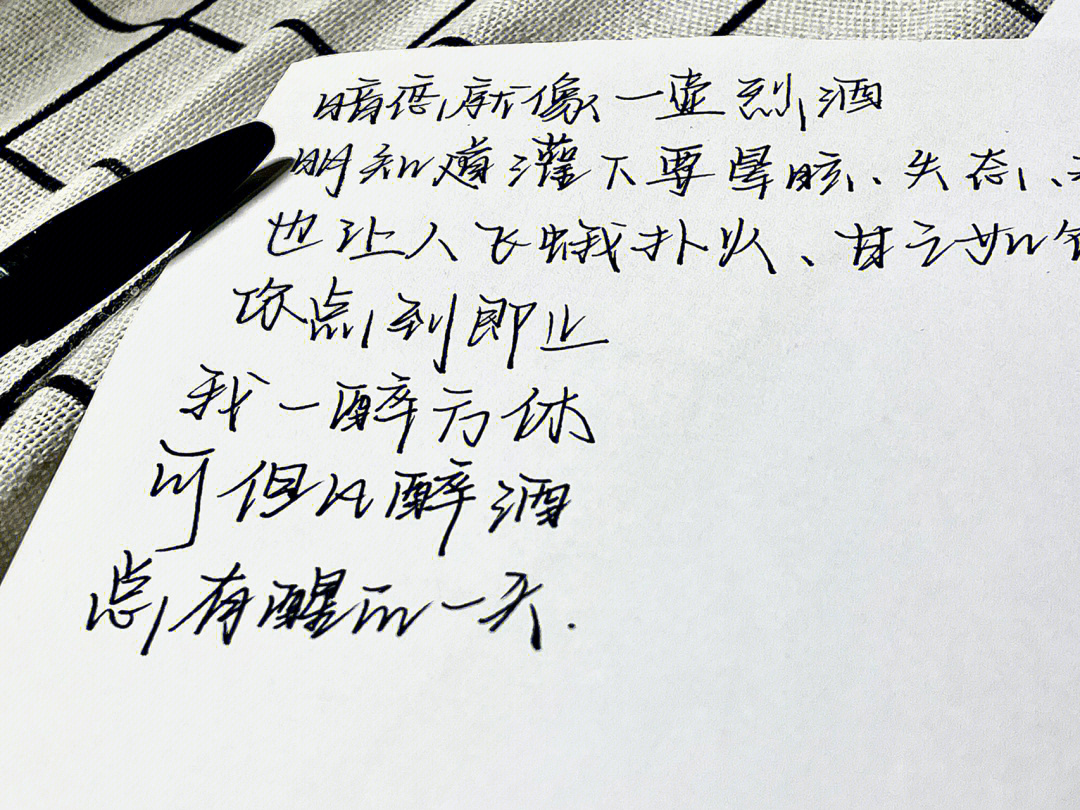 暗恋就像一壶烈酒
明知道灌下要晕眩、失态、
也让人飞蛾扑火、甘之如
你点到即止
我一醉方休
可但凡醉酒
总有醒的一天.